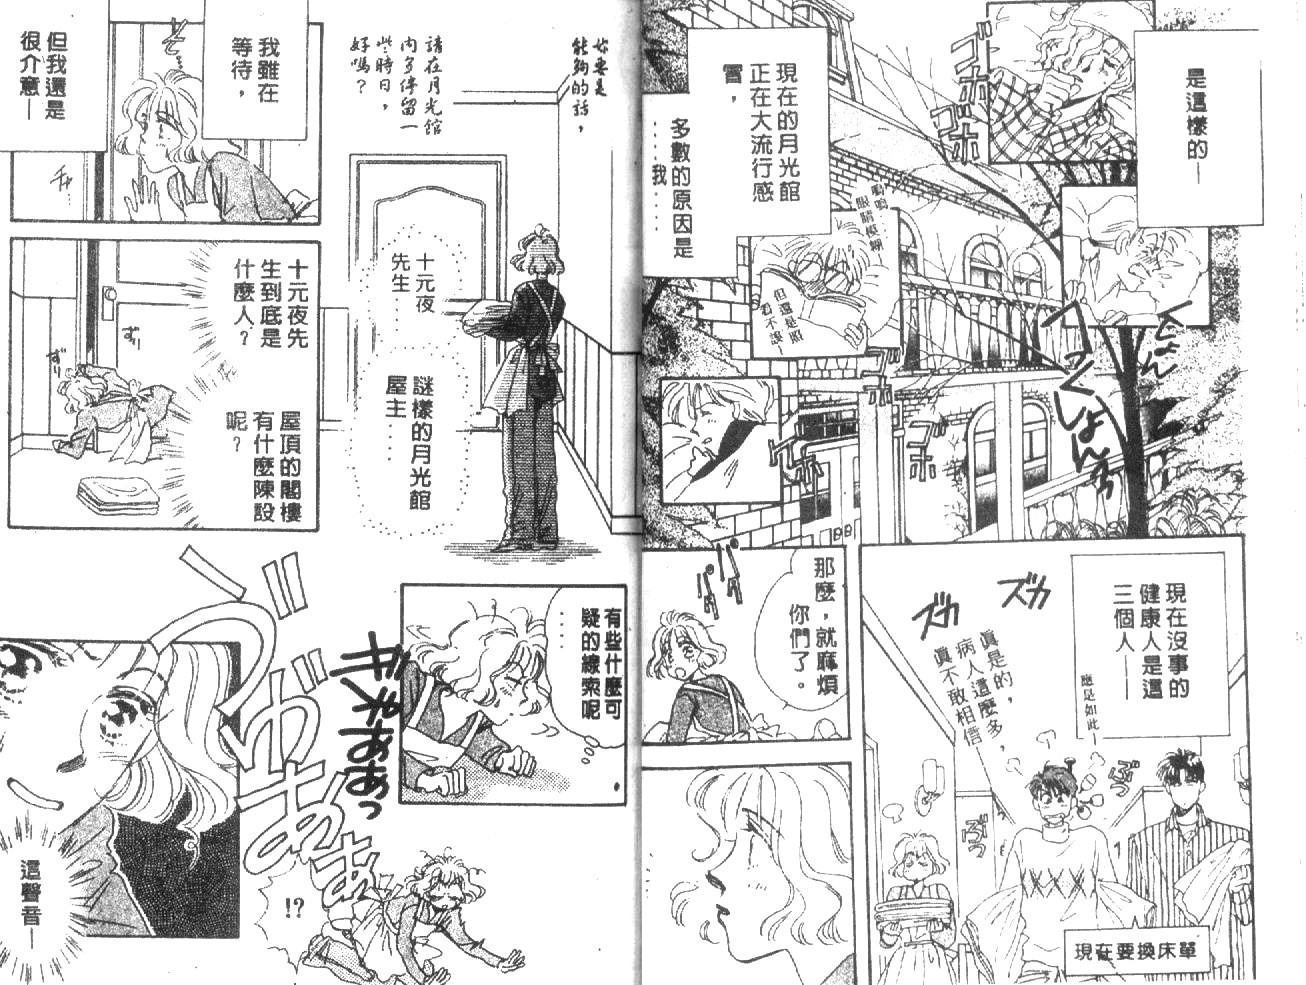 是這樣的—
ゴホ
ゴホ
現在的月光館
正在大流行感
冒，
多數的原因是
……我……
嗚嗚
眼睛模糊—
但還是照
看不誤—
へっくしょん
ゴホ
ゴホ
現在沒事的
健康人是這
三個人——
應是如此—
ズカ
ズカ
真是的，
病人這麼多，
真不敢相信
ぶつ
ぶつ
現在要換床單
那麼，就麻煩
你們了。
パパ
妳要是
能夠的話，
請在月光館
內多停留一
些時日，
好嗎？
十元夜
先生……
謎樣的月光館
屋主……
我雖在
等待，
但我還是
很介意—
十元夜先
生到底是
什麼人？
屋頂的閣樓
有什麼陳設
呢？
ずり
ずり
有些什麼可
疑的線索呢
……
ギャああっ
!?
這聲音—